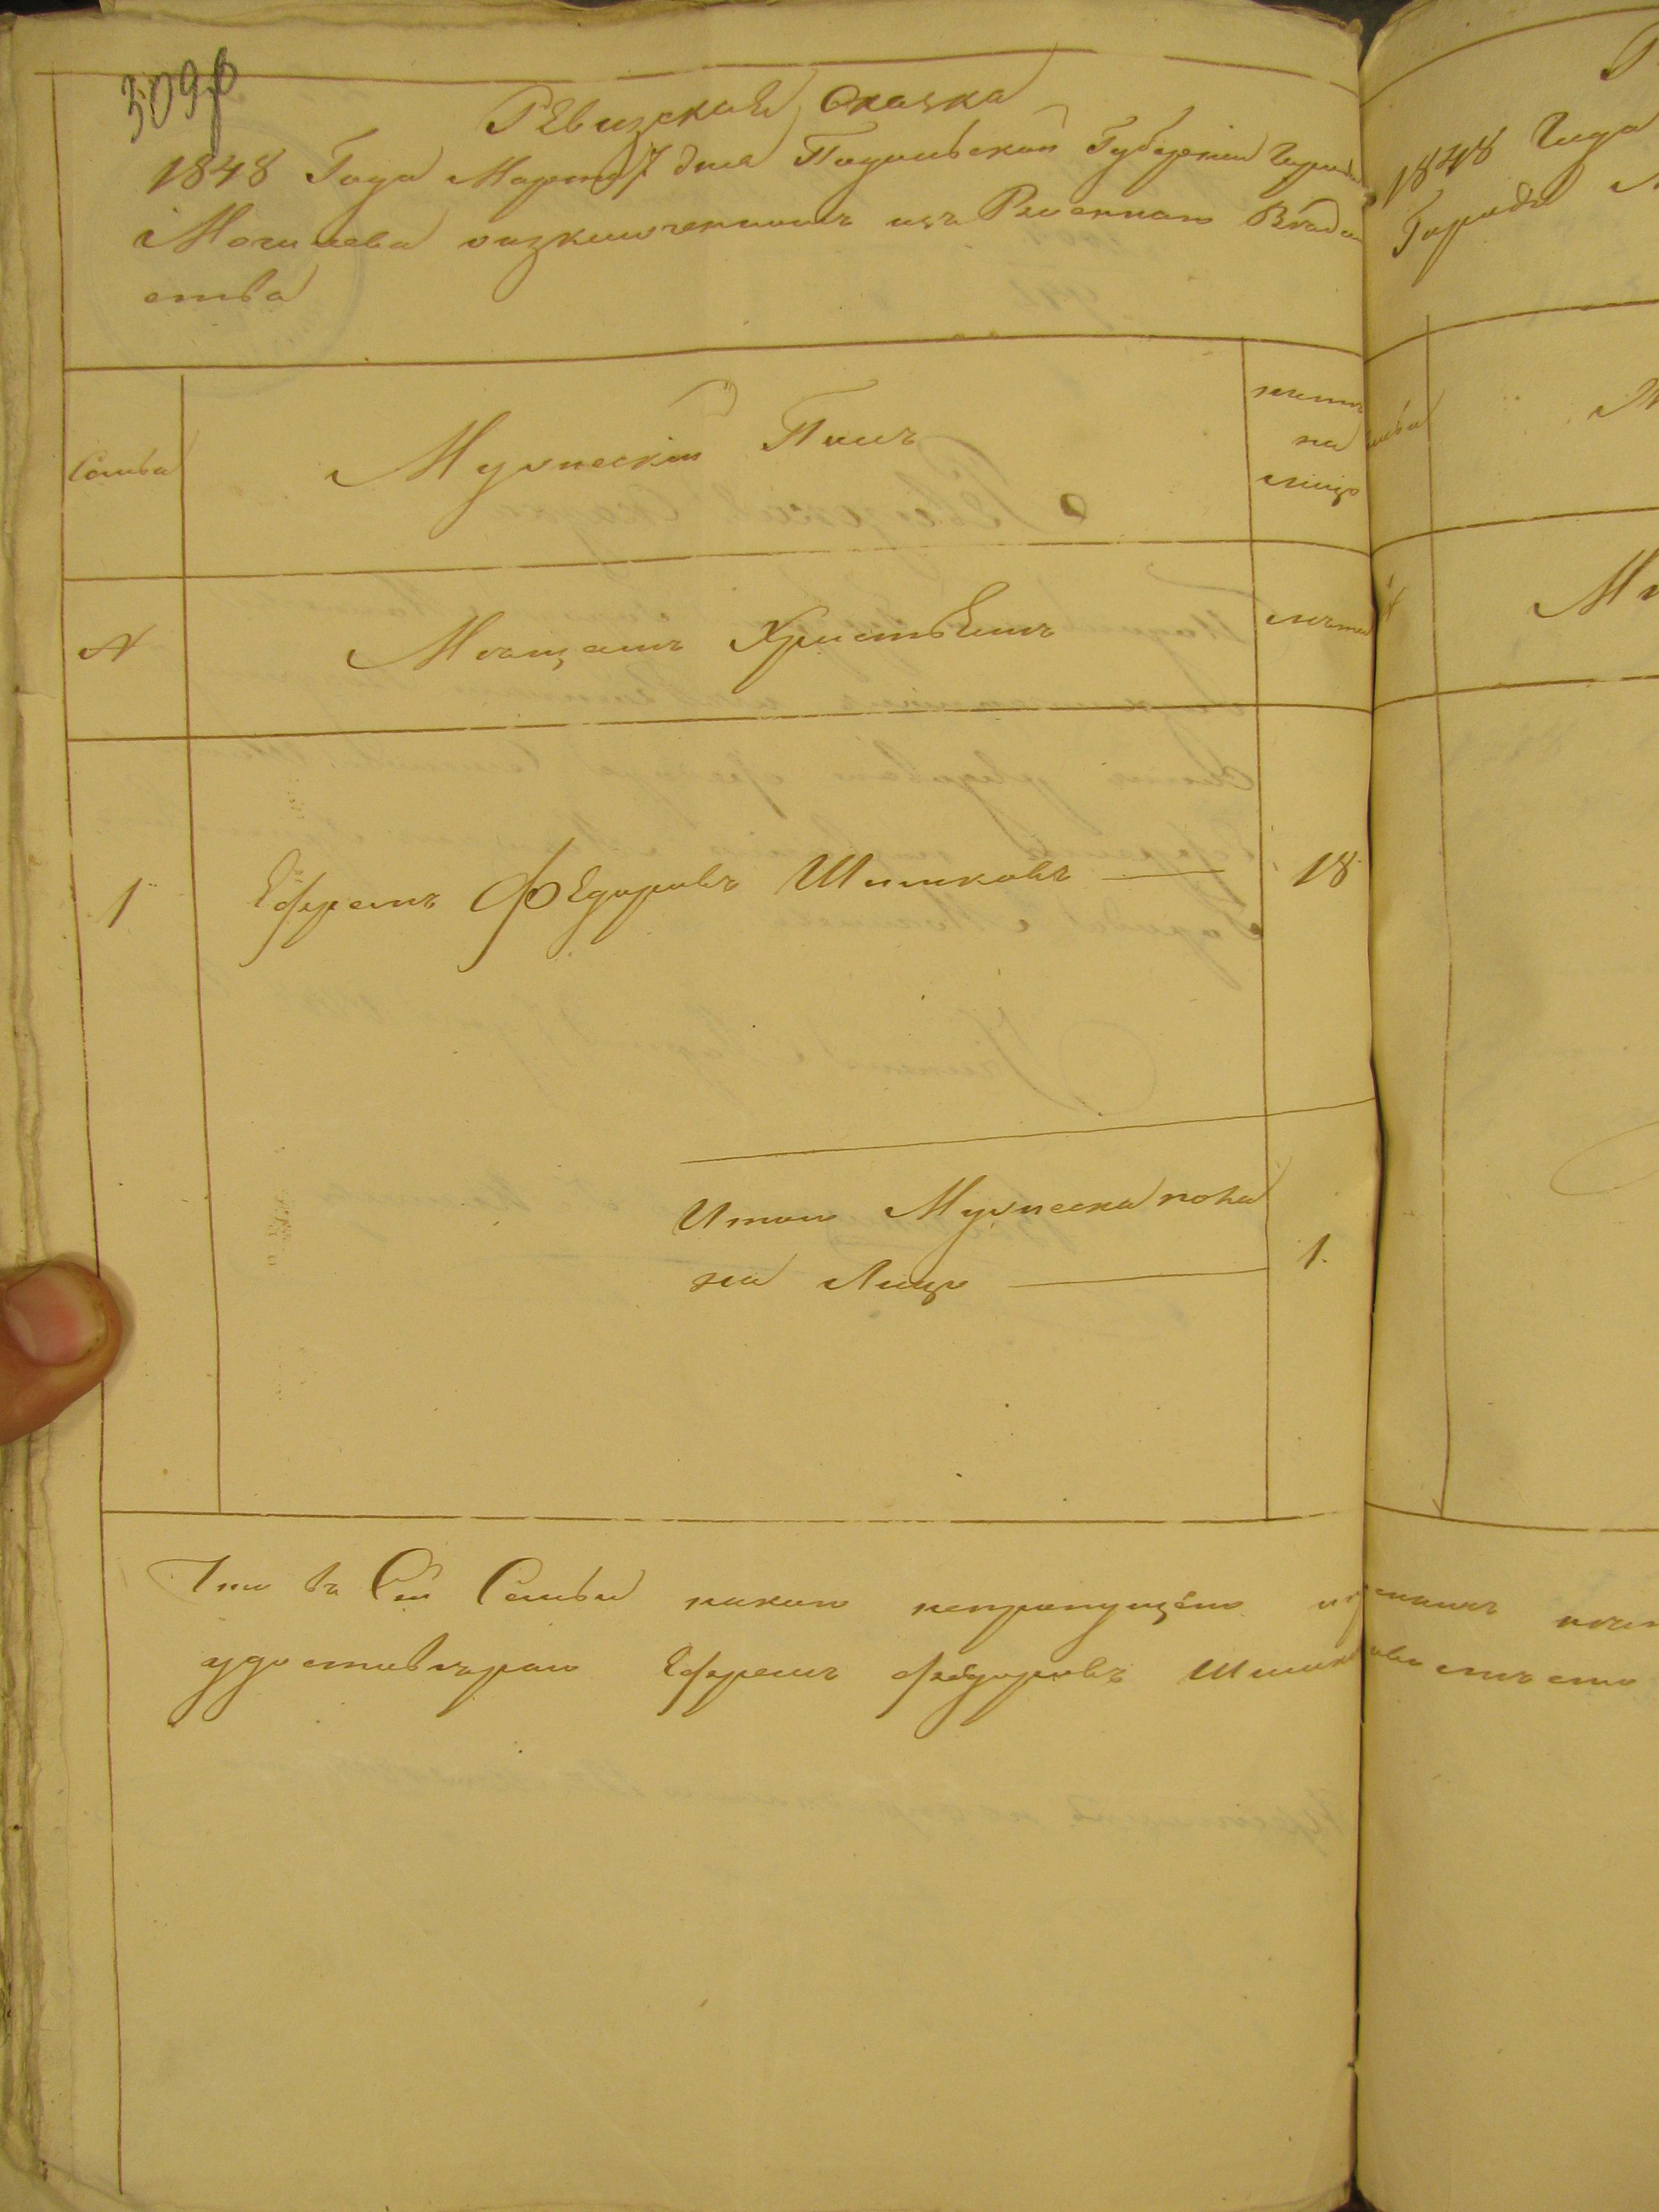 309 об
Ревизская Сказка
1848 Года Марта 7 дня Подольской Губернии Города
Могилева о изключенномъ изъ Военнаго Вѣдом
ства
Семьи
Мужескій Полъ
нынѣ
на
лицо
№
Мѣщанъ Христьянъ
лѣта
1
Ефремъ Федоровъ Шишковъ
18
Итого Мужеска пола
на Лицо
1.
Что въ Сей Семьи никого непропущено
удостовѣряю Ефремъ Федоровъ Шишко
1848 Года
Города